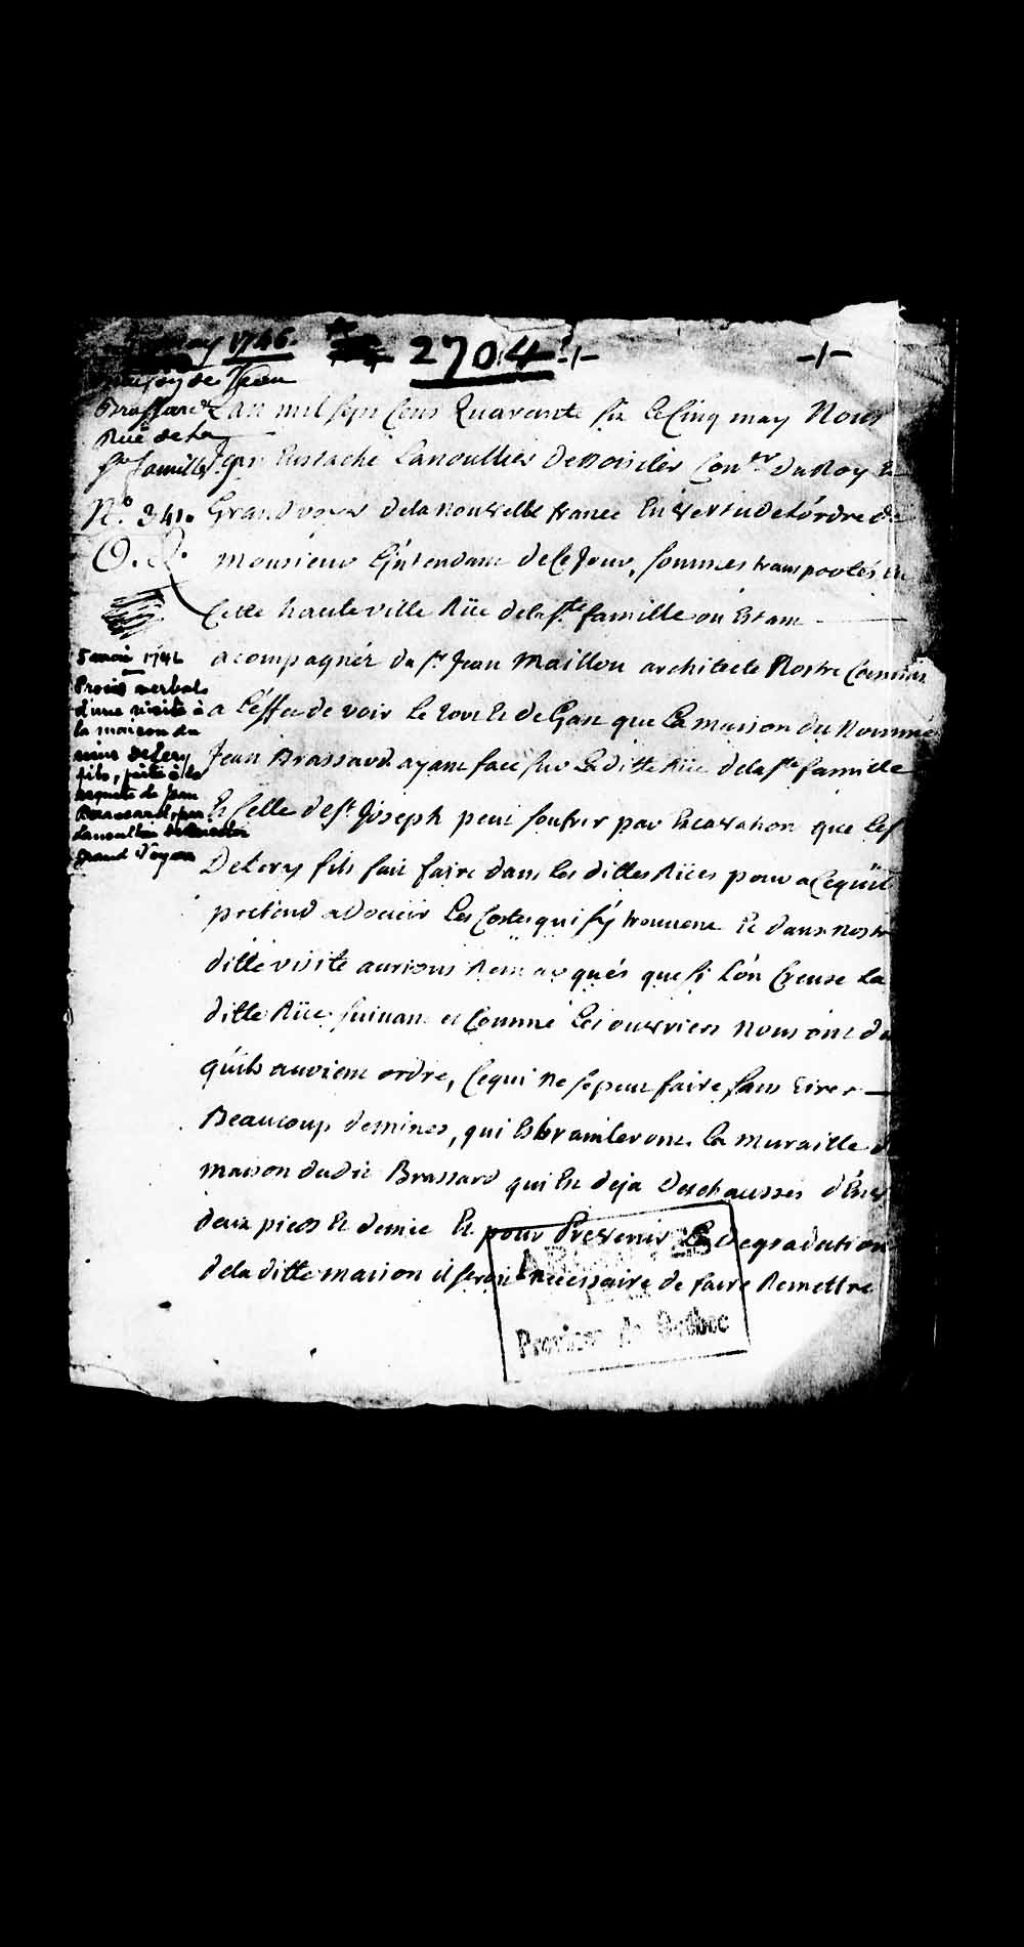 may 1746.
2704
de Jean
Brassard
Rüe de la
Ste famille
N.o 341.
5 mai 1746
Procès verbal
d'une visite à
la maison du
sieur DeLery
fils, faite à la
requête de Jean
Brassard, par
Lanoullier de Boisclair
grand Voyer
Lan mil sept Cens Quarante six le Cinq may Nous
Jean Eustache Lanoullier DeBoiscler Coner du Roy Et
Grand voyer de la nouvelle france En vertu de L'ordre de
Monsieur L'intendant de Ce Jour, sommes transportés en
Cette haute ville Rüe de la ste famille ou Estant
acompagnér du sr Jean Maillou architecte Nostre Commis
a L'effet de voir le tort Et deGast que La maison du Nommé
Jean Brassard ayant face sur La ditte Rüe de la ste famille
Et Celle de st Joseph peut soufrir par Excavation que le sr
DeLery fils fait faire dans les dittes Rües pour a Cequ'il
pretend adoucir Les Costes qui s'y trouvent Et dans nostre
ditte visite aurions Remarqués que si L'on Creuse La
ditte Rüe suivant et Comme les ouvriers nous ont dit
qu'ils avoient ordre, Cequi ne sepeut faire sans tirer
Beaucoup demines, qui Esbranleront la muraille de
maison dudit Brassard qui Est deja Deschaussés d'Env
deux pieds Et demie Et pour Prevenir La Degradation
dela ditte maison il seroit necessaire de faire Remettre
Province de Québec